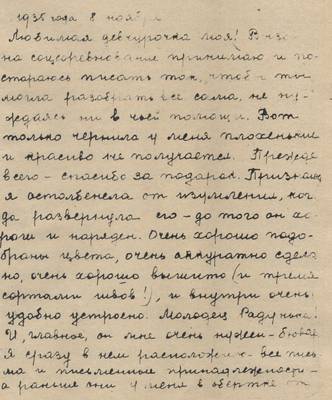 1935 года 8 ноября
Любимая девчурочка моя! Вызов
на соцсоревнование принимаю и по-
стараюсь писать так, чтоб и ты
могла разобрать все сама, не ну-
ждаясь ни в чьей помощи. Вот
только чернила у меня плохенькие
и красиво не получается. Прежде
всего - спасибо за подарок. Признаюсь
я остолбенела от изумления, ког-
да развернула его - до того он хо-
рош и наряден. Очень хорошо подо-
браны цвета, очень аккуратно сдела-
но, очень хорошо вышито (и тремя
сортами швов!), и внутри очень
удобно устроено. Молодец
И, главное, он мне очень нужен -
я сразу в нем расположила все пись-
ма и письменные принадлежности -
а раньше они у меня в обертке от